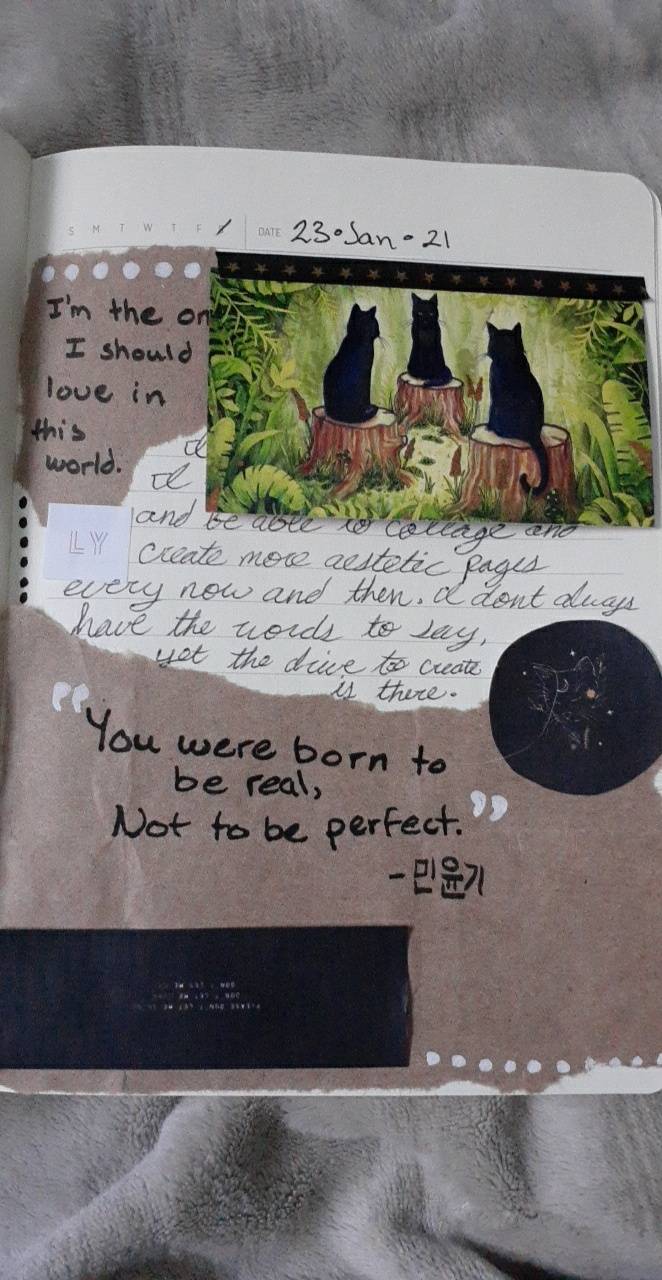 S M T W T F
DATE 23•Jan•21
I'm the on
I should
love in
this
world.
I
I
and be able to collage and
LY
create more aestetic pages
every now and then. I dont always
have the words to say,
yet the drive to create
is there.
"You were born to
be real,
Not to be perfect."
-민윤기
PLEASE DON'T LET ME
DON'T LET ME
DON'T LET ME